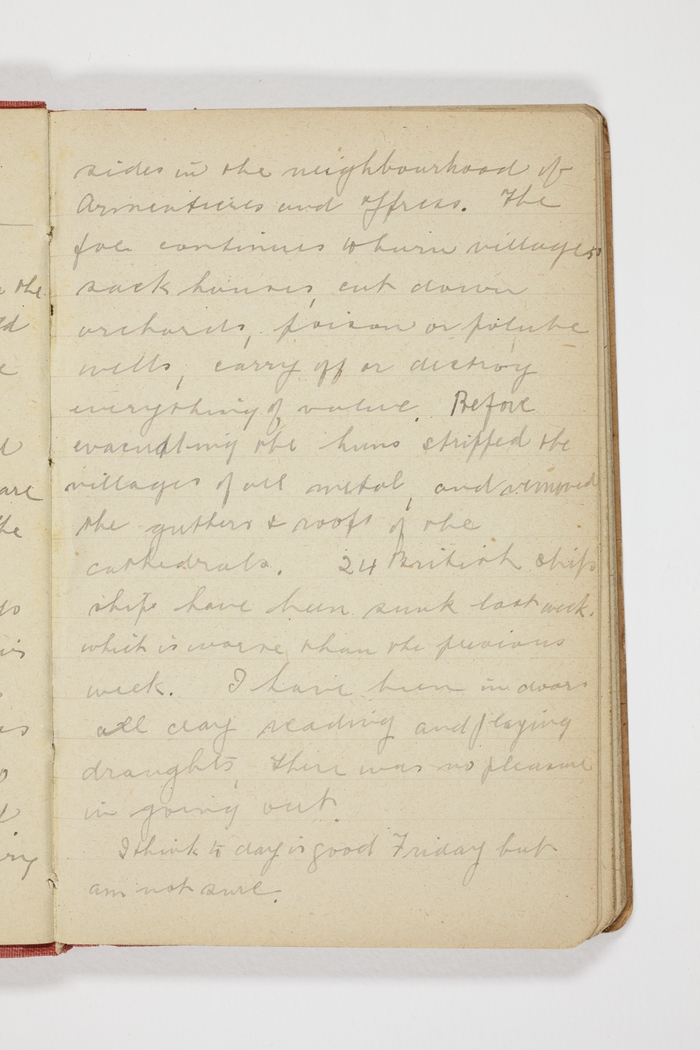 sides in the neighbourhood of
Armentieres and Ypress. The
foe continues to burn villages
sack houses, cut down
orchards, poison or polute
wells, carry off or destroy
everything of value. Before
evacuating the huns stripped the
villages of all metal, and removed
the gutters & roofs of the
cathedrals. 24 British ships
ships have been sunk last week.
which is worse than the previous
week. I have been in doors
all day reading and playing
draughts, there was no pleasure
in going out.
I think to day is good Friday but
am not sure.
the
are
the